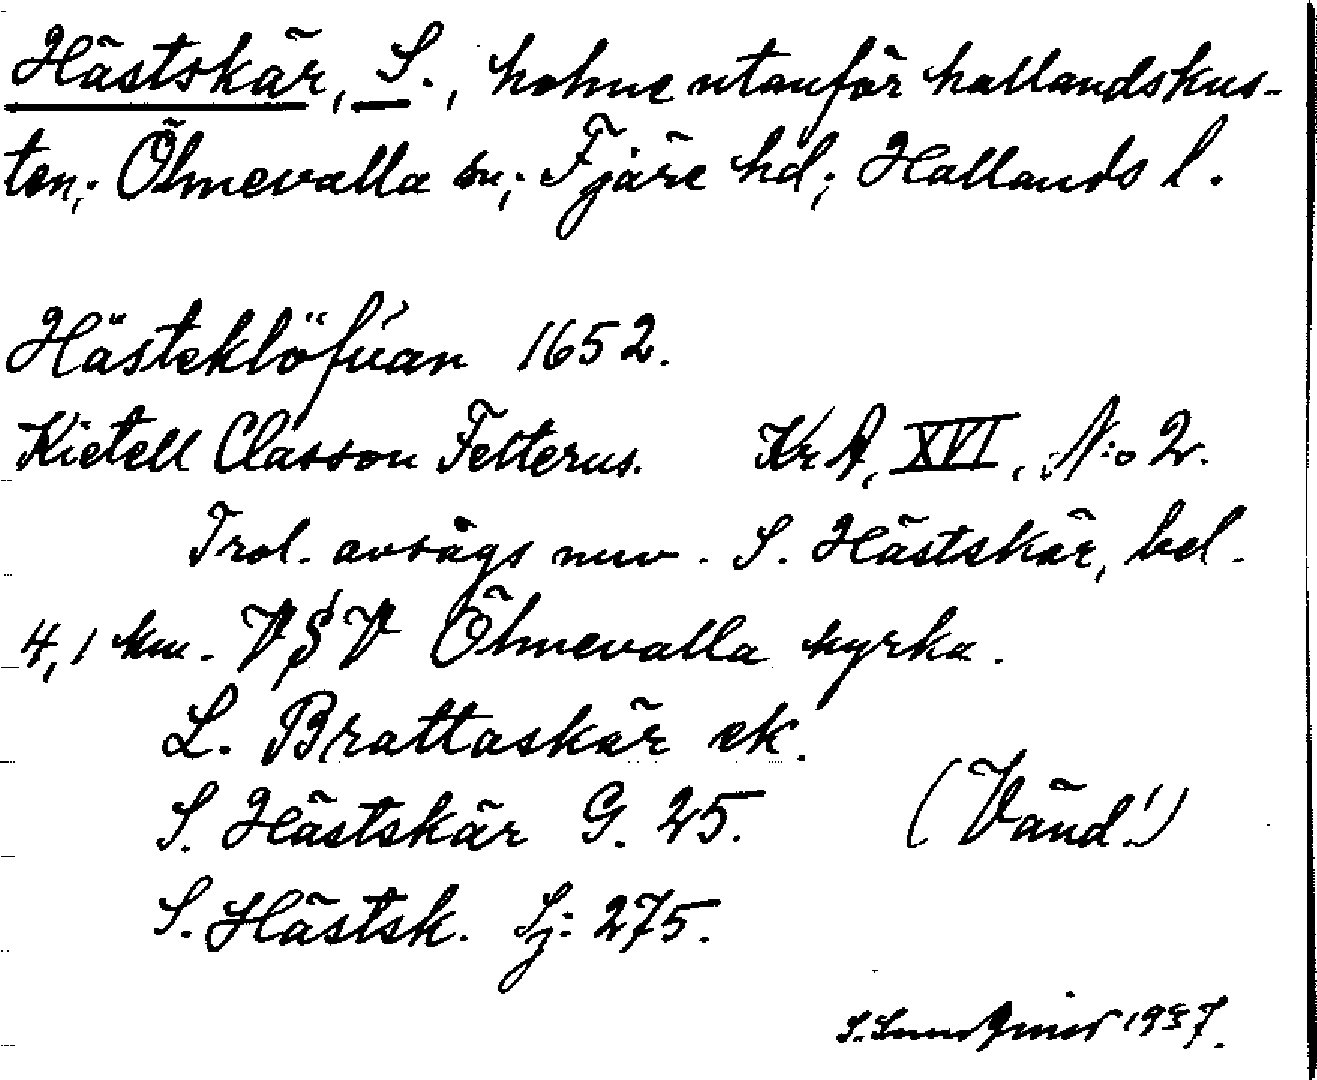 Hästskär, S., holme utanför hallandskus-
ten; Ölmevalla sn; Fjäre hd; Hallands l.
Hästeklöfúan 1652.
Kietell Classon Felterus. KrA, XVI, N:o 2.
Trol. avsågs nuv. S. Hästskär, bel.
4,1 km. V§V Ölmevalla kyrka.
L. Brattaskär ek.
S. Hästskär G. 25. (Vänd!)
S. Hästsk. Sj: 275.
1937.